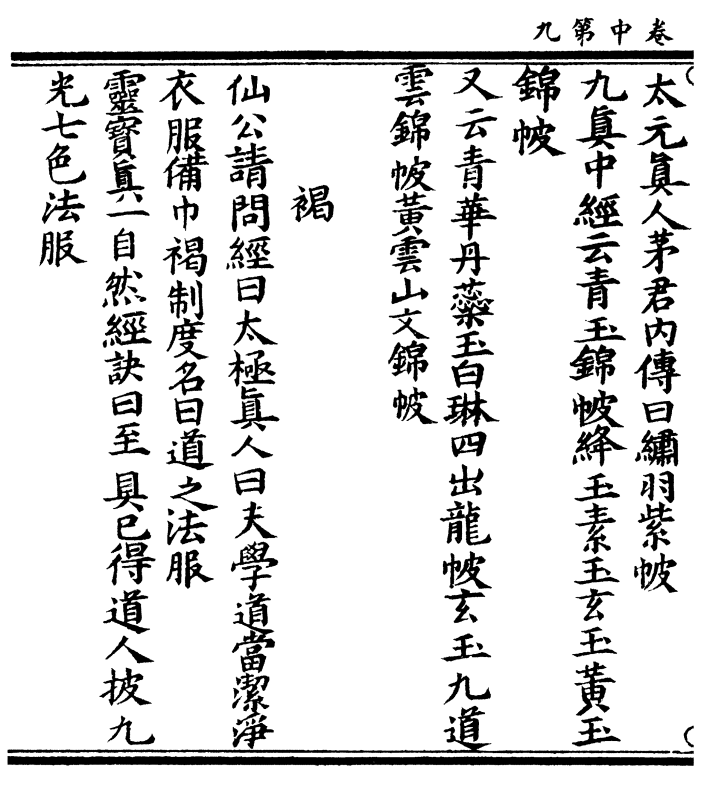 卷中第九
太元眞人茅君內傳曰繡羽紫帔
九眞中經云青玉錦帔絳玉素玉玄玉黃玉
錦帔
又云青華丹蘂玉白琳四出龍帔玄玉九道
雲錦帔黃雲山文錦帔
褐
仙公請問經曰太極眞人曰夫學道當潔淨
衣服備巾褐制度名曰道之法服
靈寶眞一自然經訣曰至眞已得道人披九
光七色法服